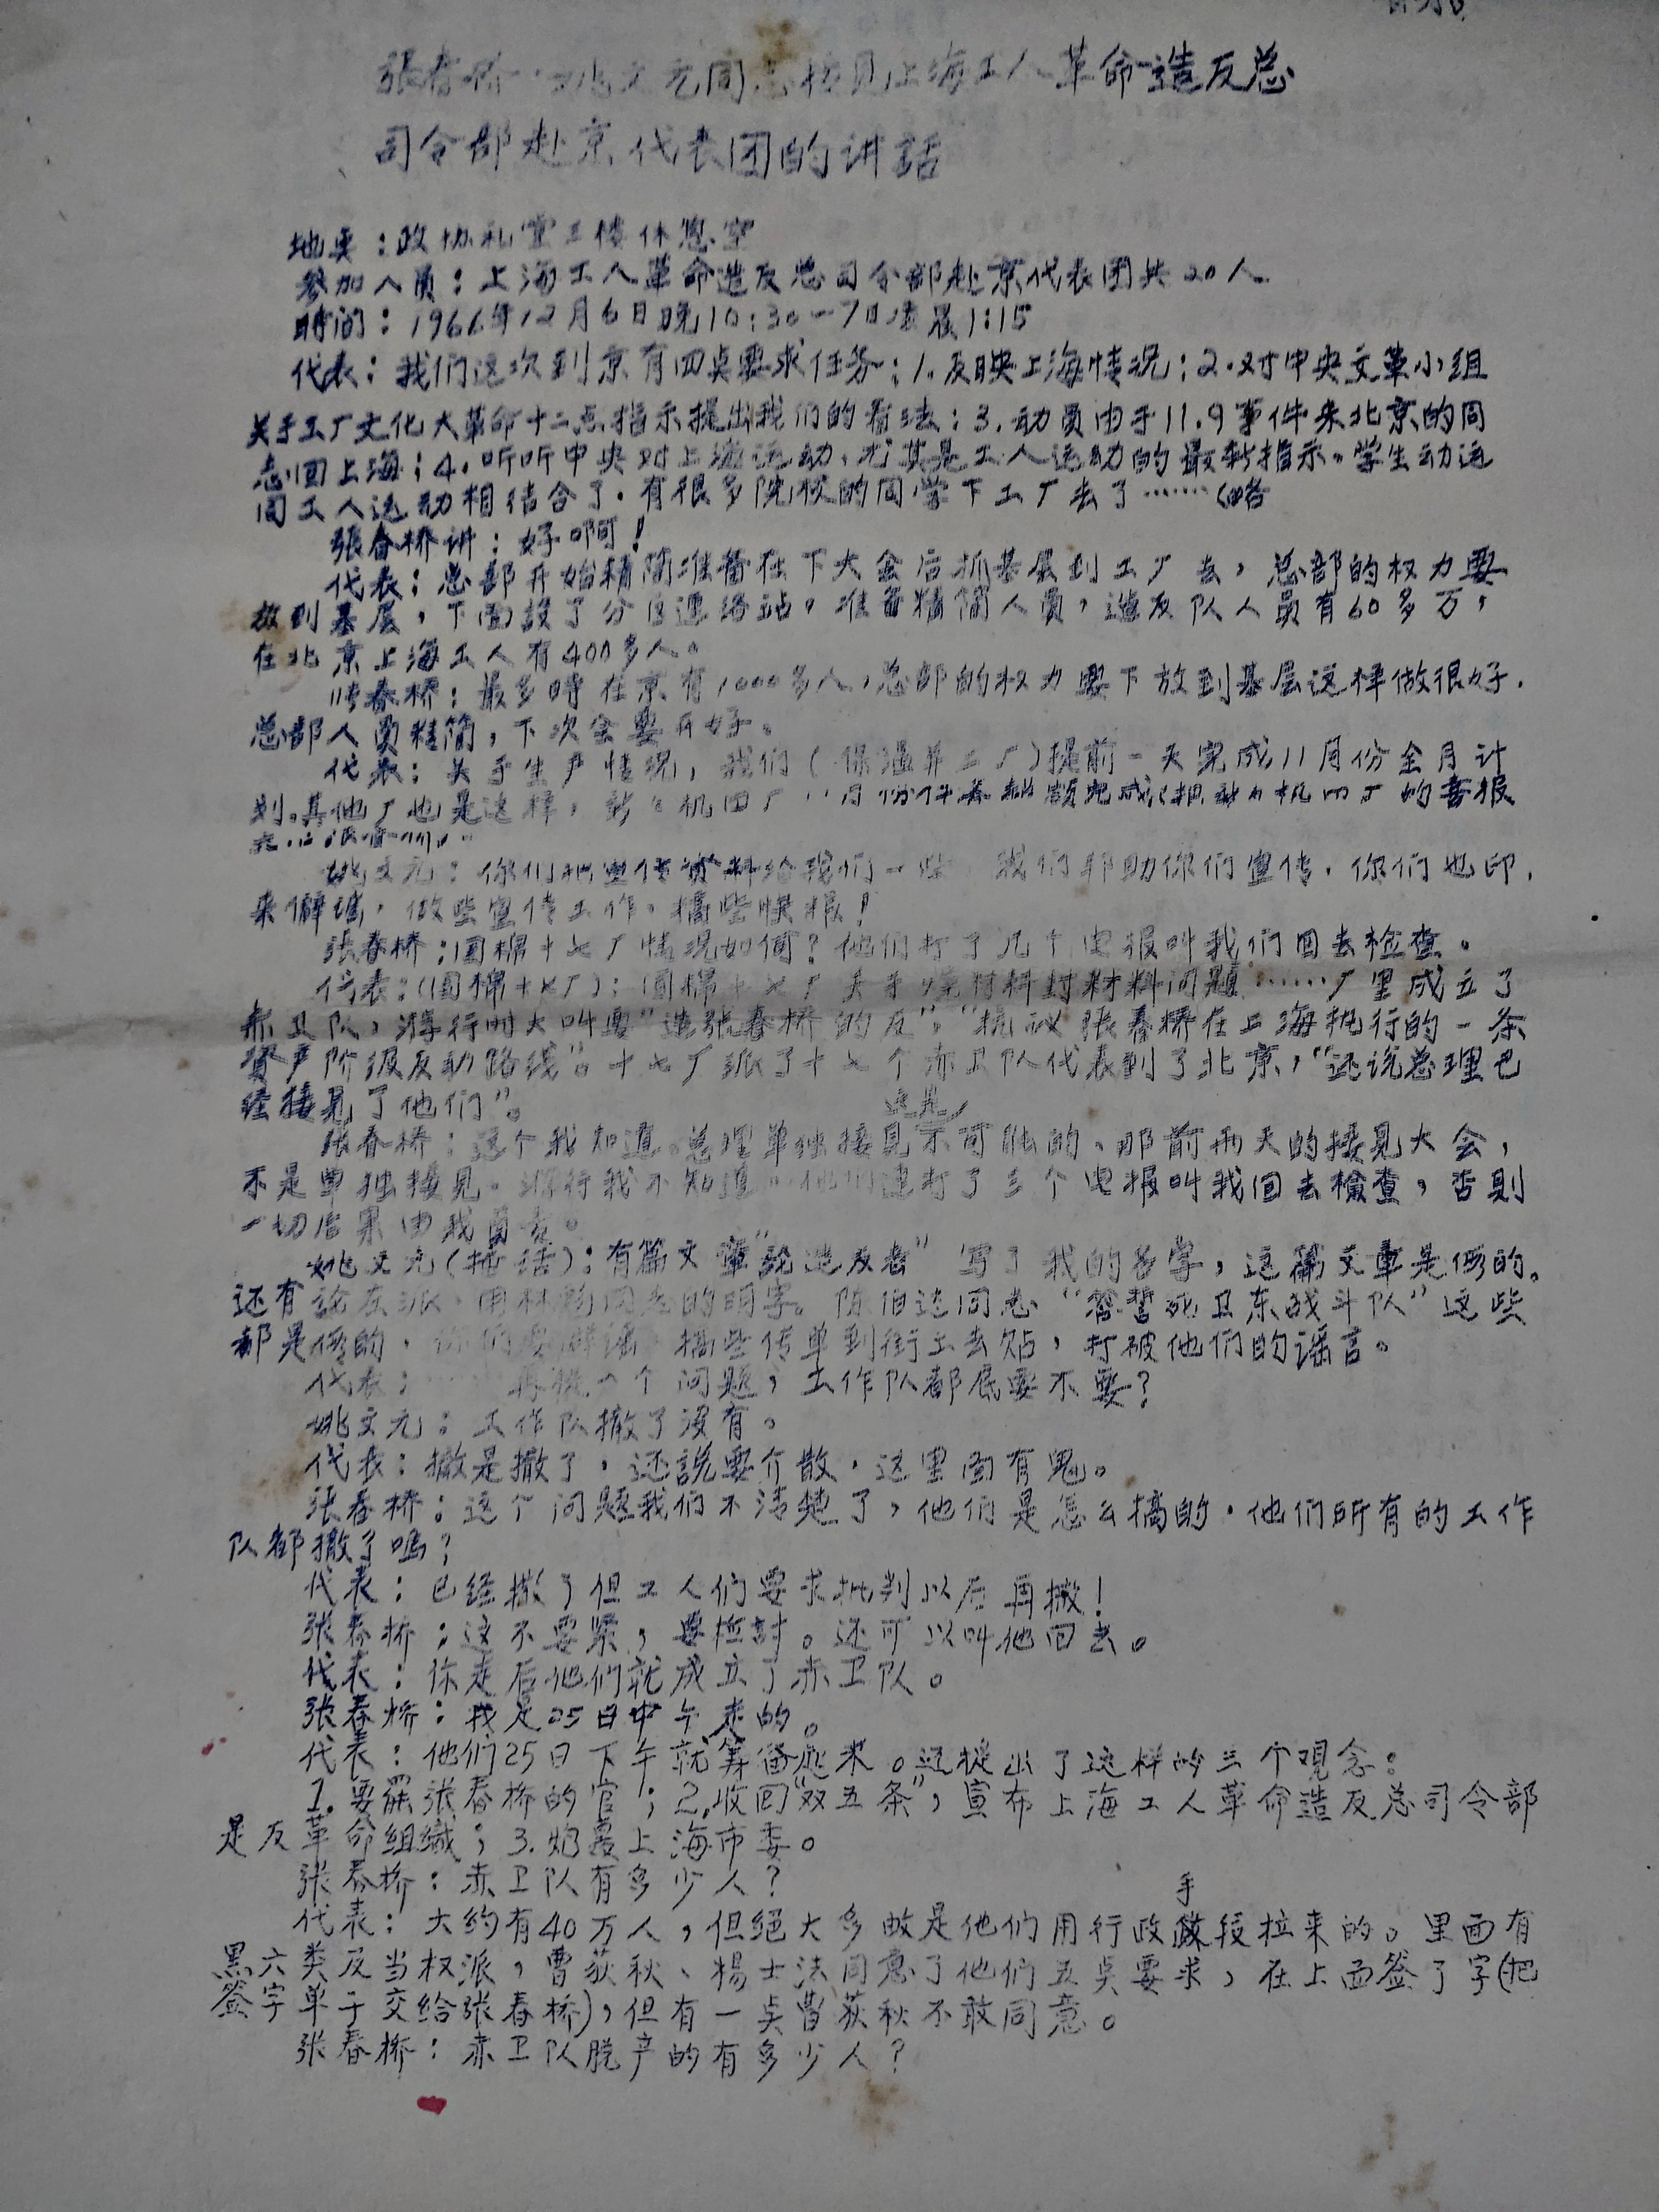 張春桥、姚文元同志接見上海工人革命造反总
司令部赴京代表团的讲話
地奌：政协礼堂三楼休息室
参加人員：上海工人革命造反总司令部赴京代表团共20人
時间：1966年12月6日晚10:30—7日凌晨1:15
代表：我们这次到京有四奌要求任务：1.反映上海情况；2.对中央文革小组
关于工厂文化大革命十二点指示提出我们的看法；3.动員由于11.9事件来北京的同
志回上海；4.听听中央对上海运动、尤其是工人运动的最新指示。学生动运
同工人运动相结合了．有很多院校的同学下工厂去了……（略
張春桥讲：好啊！
代表：总部开始精简准备在下大会后抓基层到工厂去，总部的权力要
放到基层，下面設了分区連络站。准备精简人員，造反队人員有60多万，
在北京上海工人有400多人。
张春桥：最多時在京有1000多人，总部的权力要下放到基层这样做很好．
总部人員精简，下次会要开好。
代表：关于生产情况，我们（保温并二厂）提前一天完成11月份全月计
划。其他厂也是这样，
姚文元：你们把宣传資料给我们一些 我们帮助你们宣传．你们也印．
来僻謠，做些宣传工作。搞些快报！
张春桥：国棉十七厂情况如何？他们打了几个电报叫我们回去检查。
代表：（国棉十七厂）：国棉十七厂关于 材料封材料问題……厂里成立了
赤卫队，游行时大叫要“造張春桥的反”，“抗議張春桥在上海执行的一条
資产阶级反动路线”。十七厂派了十七个赤卫队代表到了北京，“还说总理已
经接見了他们”。
张春桥：这个我知道。总理单独接見这是不可能的、那前两天的接見大会，
不是单独接見。游行我不知道。他们連打了三个电报叫我回去檢查，否则
一切后果由我負责。
姚文元（插话）：有篇文章“論造反者”写了我的名字，这篇文章是假的。
还有論左派、用林彪同志的明字。陈伯达同志“答誓死卫东战斗队”这些
都是假的．你们要僻謠 搞些传单到街上去贴，打破他们的谣言。
代表：……再提一个问题，工作队都底要不要？
姚文元：工作队撤了没有。
代表：撤是撤了，还說要介散．这里面有鬼。
张春桥：这个问题我们不清楚了，他们是怎么搞的．他们所有的工作
队都撤了嗎？
代表：已经撤了但工人们要求批判以后再撤！
张春桥：这不要緊，要检討。还可以叫他回去。
代表：你走后他们就成立了赤卫队。
张春桥：我是25日中午走的。
代表：他们25日下午就筹备起来。还提出了这样的三个观念：
1.要罷张春桥的官！；2.收回“双五条”，宣布上海工人革命造反总司令部
是反革命组織；3.炮轰上海市委。
张春桥：赤卫队有多少人？
代表：大约有40万人，但絕大多数是他们用行政手段拉来的。里面有
黑六类及当权派，曹荻秋、楊士法同意了他们五奌要求，在上面签了字（把
签字单子交给张春桥），但有一奌曹荻秋不敢同意。
张春桥：赤卫队脫产的有多少人？